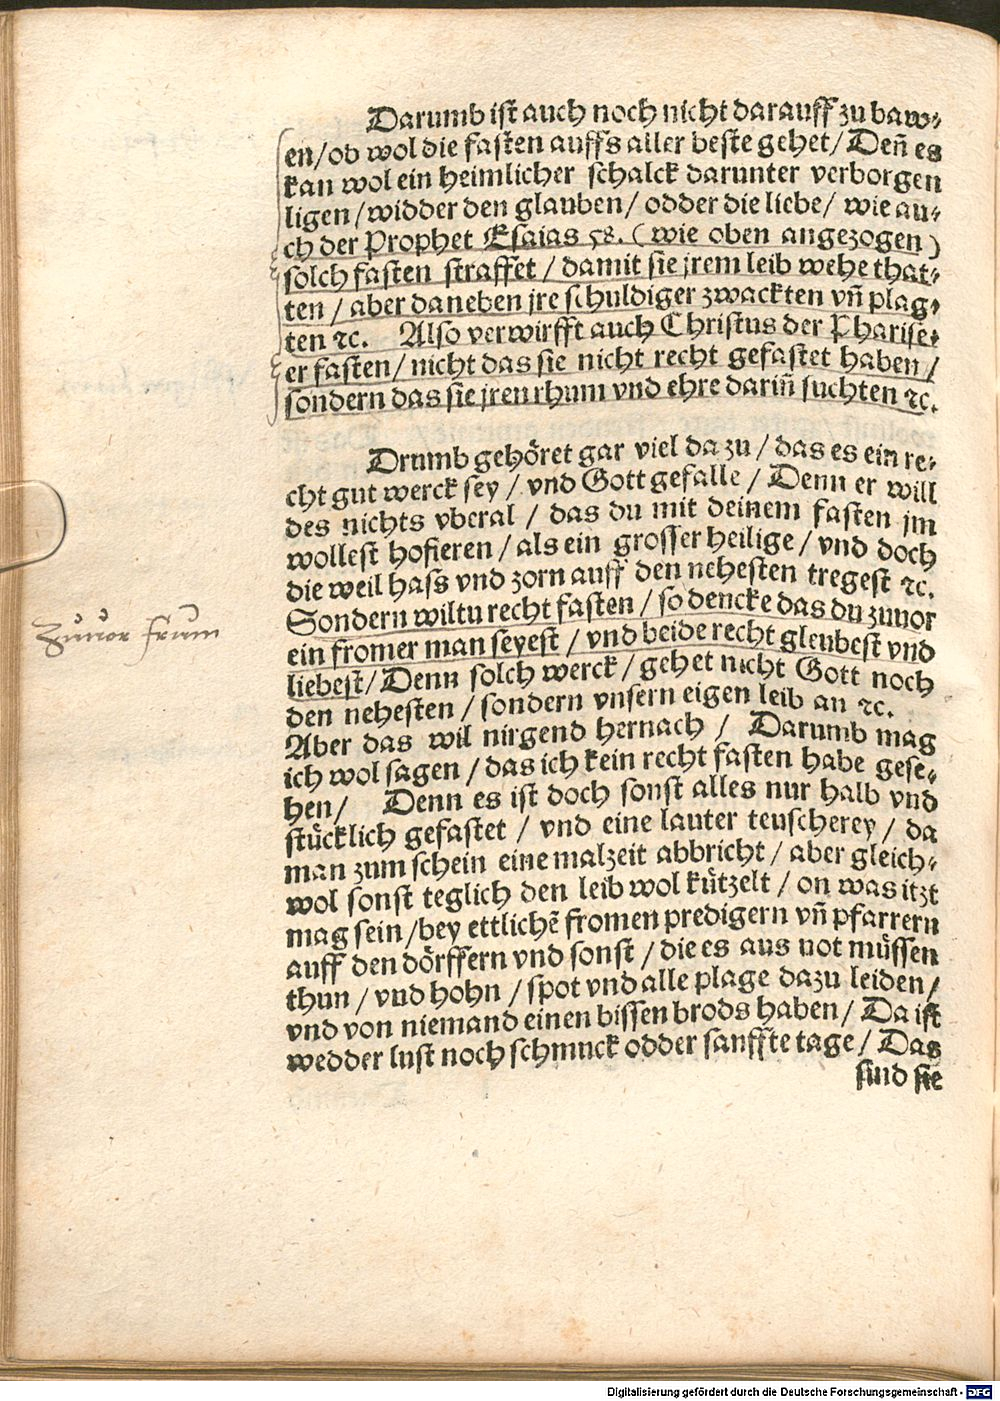 Darumb ist auch noch nicht darauff zu baw⸗
en/ob wol die fasten auffs aller beste gehet/ Deñ es
kan wol ein heimlicher schalck darunter verborgen
ligen /widder den glauben/ odder die liebe/ wie au⸗
ch der Prophet Esaias 58. ( wie oben angezogen )
solch fasten straffet / damit sie jrem leib wehe that⸗
ten / aber daneben jre schuldiger zwackten vñ plag⸗
ten ꝛc. Also verwirfft auch Christus der Pharise⸗
er fasten/ nicht das sie nicht recht gefastet haben /
sondern das sie jren rhum vnd ehre dariñ suchten ꝛc.
Drumb gehöret gar viel da zu / das es ein re⸗
cht gut werck sey / vnd Gott gefalle / Denn er will
des nichts vberal / das du mit deinem fasten jm
wollest hofieren / als ein grosser heilige / vnd doch
die weil hass vnd zorn auff den nehesten tregest ꝛc.
Sondern wiltu recht fasten / so dencke das du zuuor
ein fromer man seyest / vnd beide recht gleubest vnd
liebest/ Denn solch werck / gehet nicht Gott noch
den nehesten / sondern vnsern eigen leib an ꝛc.
Aber das wil nirgend hernach / Darumb mag
ich wol sagen / das ich kein recht fasten habe gese⸗
hen/ Denn es ist doch sonst alles nur halb vnd
stücklich gefastet / vnd eine lauter teuscherey / da
man zum schein eine malzeit abbricht / aber gleich⸗
wol sonst teglich den leib wol kützelt / on was itzt
mag sein /bey ettlichẽ fromen predigern vñ pfarrern
auff den dörffern vnd sonst / die es aus not müssen
thun / vnd hohn / spot vnd alle plage dazu leiden /
vnd von niemand einen bissen brods haben/ Da ist
wedder lust noch schmuck odder sanffte tage/ Das
sind sie
Zuuor frum
Digitalisierung gefördert durch die Deutsche Forschungsgemeinschaft - DFG